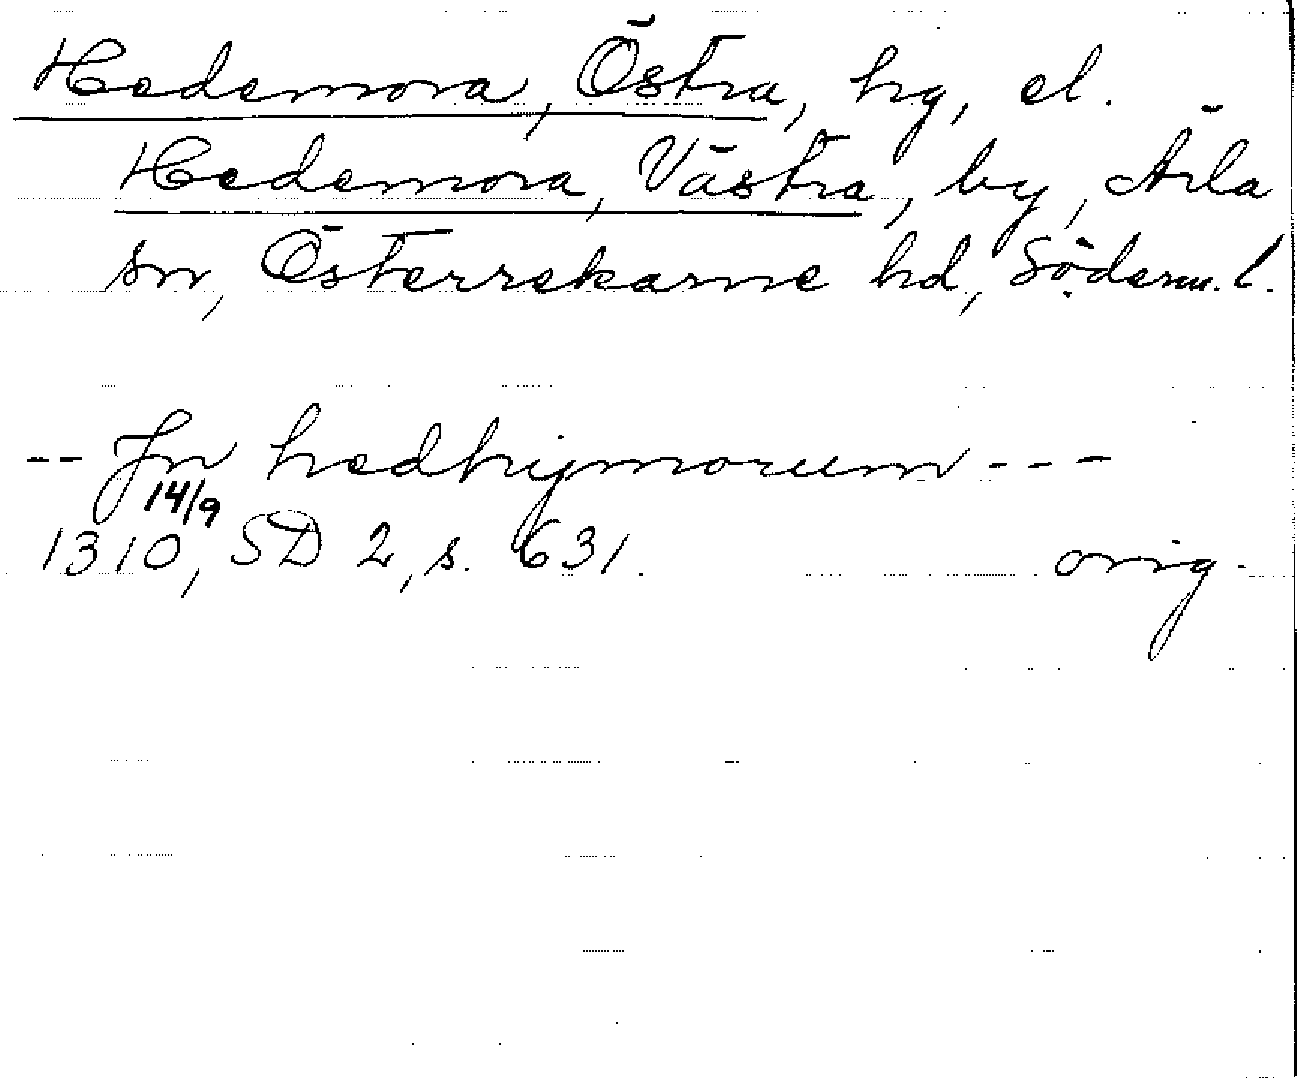 Hedemora, Östra, hg, el.
Hedemora, Västra, by, Ärla
sn, Österrekarne hd, Söderm. l.
-- Jn hedhijmorum ---
14/9
1310, SD 2, s. 631. orig.